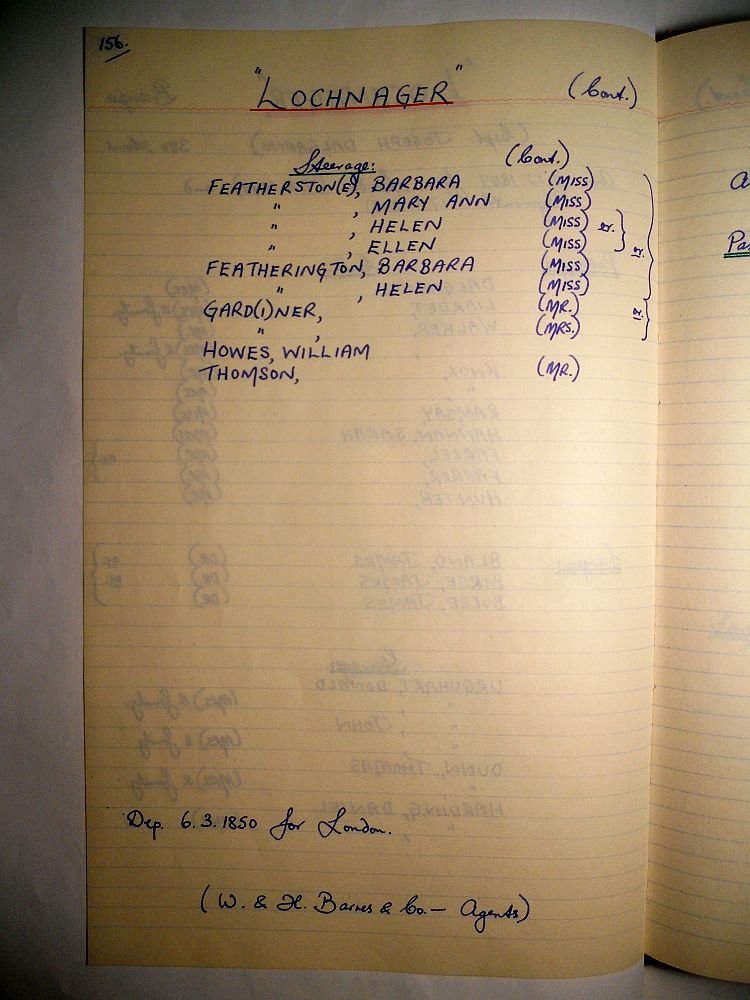 156.
"LOCHNAGER" (Cont.)
Steerage: (Cont.)
FEATHERSTON(E), BARBARA (MISS)
" , MARY ANN (MISS)
" , HELEN (MISS) or.
" , ELLEN (MISS)
FEATHERINGTON, BARBARA (MISS) or.
" , HELEN (MISS)
GARD(I)NER, (MR.) or.
" , (MRS.)
HOWES, WILLIAM
THOMSON, (MR.)
Dep. 6.3.1850 for London.
(W. & H. Barnes & Co. — Agents)